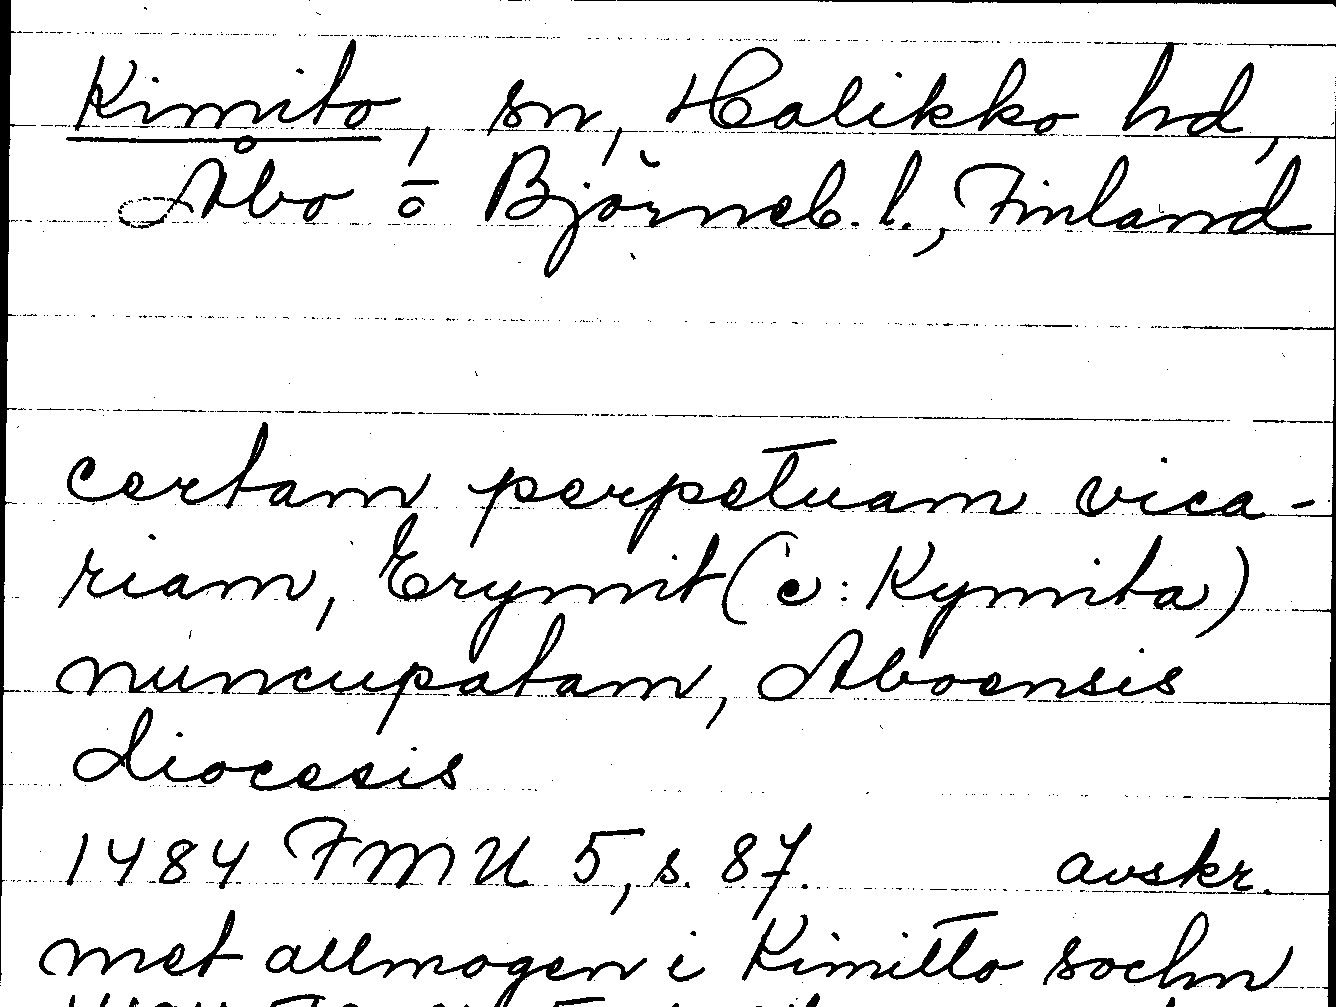 Kimito, sn, Halikko hd,
Åbo o Björneb. l., Finland
certam perpetuam vica-
riam, Erymit (ɔ: Kymita)
nuncupatam, Aboensis
diocesis
1484 FMU 5, s. 87. avskr.
met allmogen i Kimitto sochn